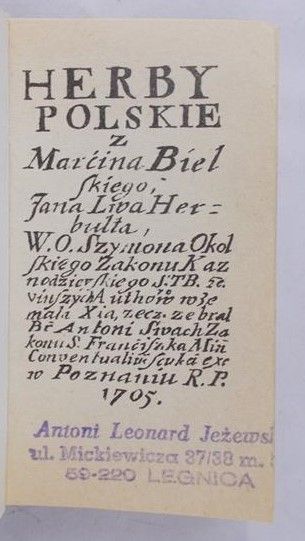 HERBY
POLSKIE
z
Marćina Biel
skiego,
Jana Lwa Her=
bulta,
W.O. Szymona Okol
skiego Zakonu Kaz
nodzieyskiego S.TB. że
inszych Authów w że
mała Xia, zecz. zebrał
Bē Antoni Swach Za
konu S. Franćiszka Miñ
Conventualiū
w Poznaniu R.P.
1705.
Antoni Leonard Jeżews
ul. Mickiewicza 37/38 m.
59-220 LEGNICA